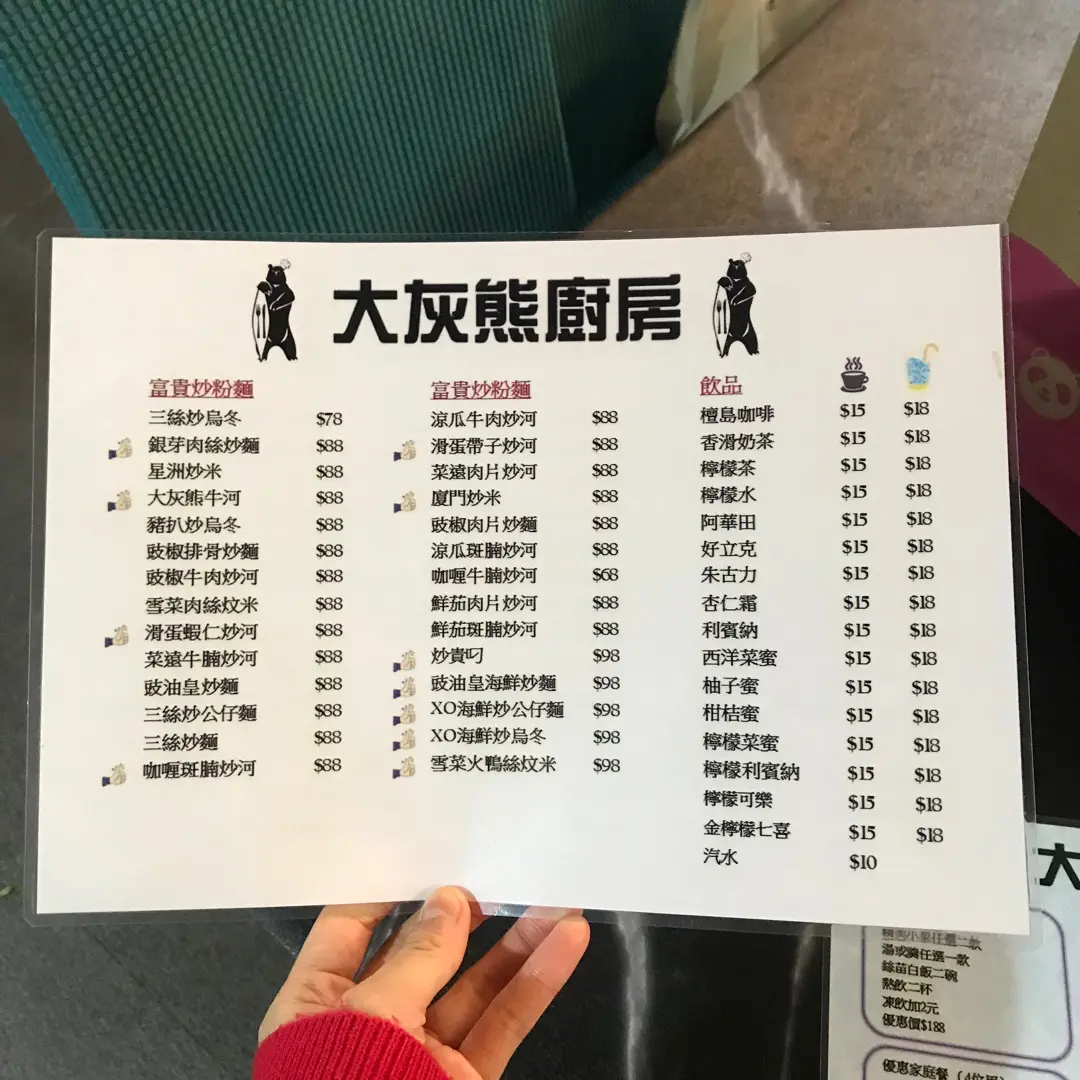 大灰熊廚房
富貴炒粉麵
三絲炒烏冬 $78
銀芽肉絲炒麵 $88
星洲炒米 $88
大灰熊牛河 $88
豬扒炒烏冬 $88
豉椒排骨炒麵 $88
豉椒牛肉炒河 $88
雪菜肉絲炆米 $88
滑蛋蝦仁炒河 $88
菜遠牛腩炒河 $88
豉油皇炒麵 $88
三絲炒公仔麵 $88
三絲炒麵 $88
咖喱斑腩炒河 $88
富貴炒粉麵
涼瓜牛肉炒河 $88
滑蛋帶子炒河 $88
菜遠肉片炒河 $88
廈門炒米 $88
豉椒肉片炒麵 $88
涼瓜斑腩炒河 $88
咖喱牛腩炒河 $68
鮮茄肉片炒河 $88
鮮茄斑腩炒河 $88
炒貴叼 $98
豉油皇海鮮炒麵 $98
XO海鮮炒公仔麵 $98
XO海鮮炒烏冬 $98
雪菜火鴨絲炆米 $98
飲品
檀島咖啡 $15 $18
香滑奶茶 $15 $18
檸檬茶 $15 $18
檸檬水 $15 $18
阿華田 $15 $18
好立克 $15 $18
朱古力 $15 $18
杏仁霜 $15 $18
利賓納 $15 $18
西洋菜蜜 $15 $18
柚子蜜 $15 $18
柑桔蜜 $15 $18
檸檬菜蜜 $15 $18
檸檬利賓納 $15 $18
檸檬可樂 $15 $18
金檸檬七喜 $15 $18
汽水 $10
大
精美小菜任選二款
湯或糖任選一款
絲苗白飯二碗
熱飲二杯
凍飲加2元
優惠價$188
優惠家庭餐（4位用）